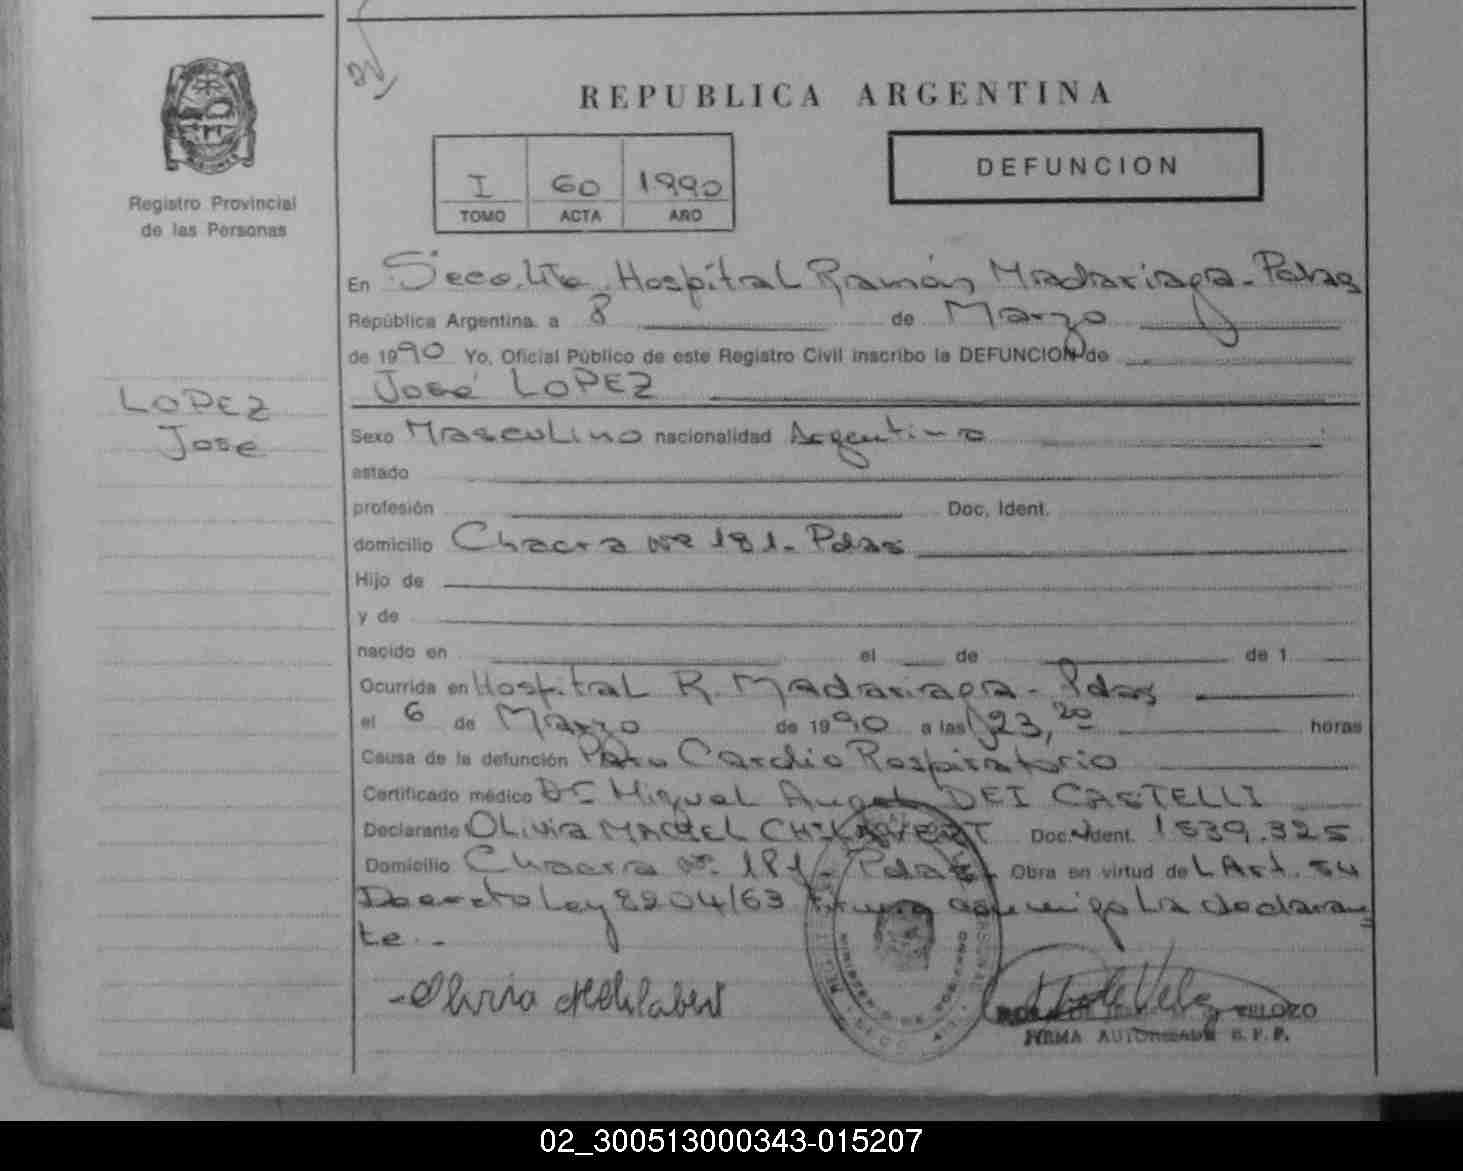 REPUBLICA ARGENTINA
DEFUNCION
I 60 1990
TOMO ACTA AÑO
Registro Provincial
de las Personas
En Secc. Hospital Ramón Madariaga - Pdas
República Argentina a 8 de Marzo
de 1990 Yo, Oficial Público de este Registro Civil inscribo la DEFUNCION de
José LOPEZ
LOPEZ
Jose
Sexo Masculino nacionalidad Argentina
estado
profesión Doc. Ident.
domicilio Chacra Nº 181 - Pdas
Hijo de
y de
nacido en el de de 1
Ocurrida en Hospital R. Madariaga - Pdas
el 6 de Marzo de 1990 a las 23,20 horas
Causa de la defunción Paro Cardio Respiratorio
Certificado médico Dr Miguel Angel DEI CASTELLI
Declarante Olivia MACIEL CHILAVERT Doc. Ident. 1539.325
Domicilio Chacra Nº 181 - Pdas Obra en virtud del Art. 54
Decreto Ley 8204/63 Firma conmigo la declaran
te.-
Olivia
FIRMA AUTORIZADA R. P. P.
02_300513000343-015207